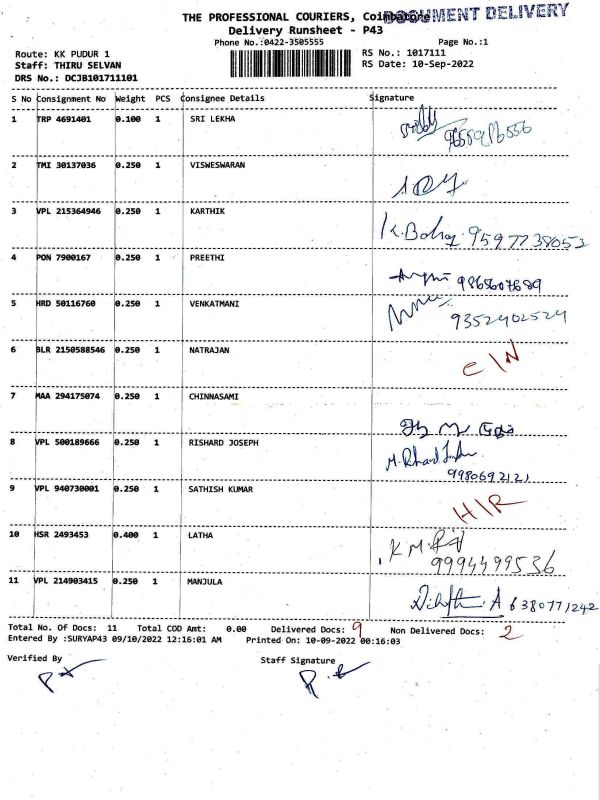 THE PROFESSIONAL COURIERS, Coimbatore
DOCUMENT DELIVERY
Delivery Runsheet - P43
Phone No.:0422-3505555 Page No.:1
Route: KK PUDUR 1 RS No.: 1017111
Staff: THIRU SELVAN RS Date: 10-Sep-2022
DRS No.: DCJB101711101
S No Consignment No Weight PCS Consignee Details Signature
1 TRP 4691401 0.100 1 SRI LEKHA
2 TMI 30137036 0.250 1 VISWESWARAN
3 VPL 215364946 0.250 1 KARTHIK
9597738053
4 PON 7900167 0.250 1 PREETHI
9865607689
5 HRD 50116760 0.250 1 VENKATMANI
9352402524
6 BLR 2150588546 0.250 1 NATRAJAN C/N
7 MAA 294175074 0.250 1 CHINNASAMI
8 VPL 500189666 0.250 1 RISHARD JOSEPH
9980692121
9 VPL 940730001 0.250 1 SATHISH KUMAR H/R
10 HSR 2493453 0.400 1 LATHA K M
9994499536
11 VPL 214903415 0.250 1 MANJULA A 6380771242
Total No. Of Docs: 11 Total COD Amt: 0.00 Delivered Docs: 9 Non Delivered Docs: 2
Entered By :SURYAP43 09/10/2022 12:16:01 AM Printed On: 10-09-2022 00:16:03
Verified By Staff Signature